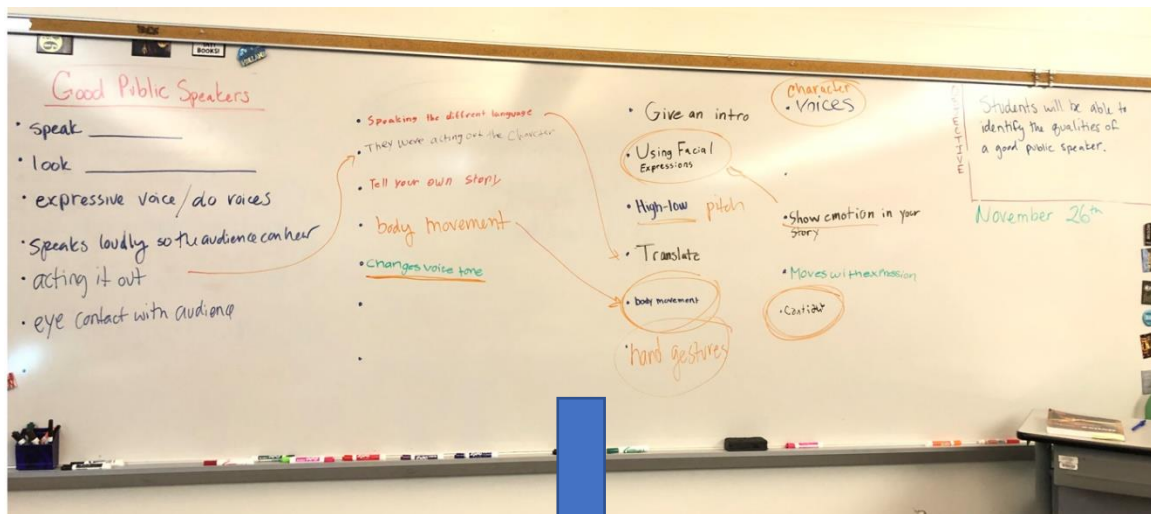 Good Public Speakers
• speak
• look
• expressive voice/do voices
• Speaks loudly so the audience can hear
• acting it out
• eye contact with audience
• Speaking the different language
• They were acting out the Character
• Tell your own story
• body movement
• Changes voice tone
• Give an intro
• Using Facial
Expressions
• High-low pitch
• Translate
• body movement
• hand gestures
character
• voices
• Show emotion in your
story
• Moves with expression
OBJECTIVE
Students will be able to
identify the qualities of
a good public speaker.
November 26th
BOOKS!